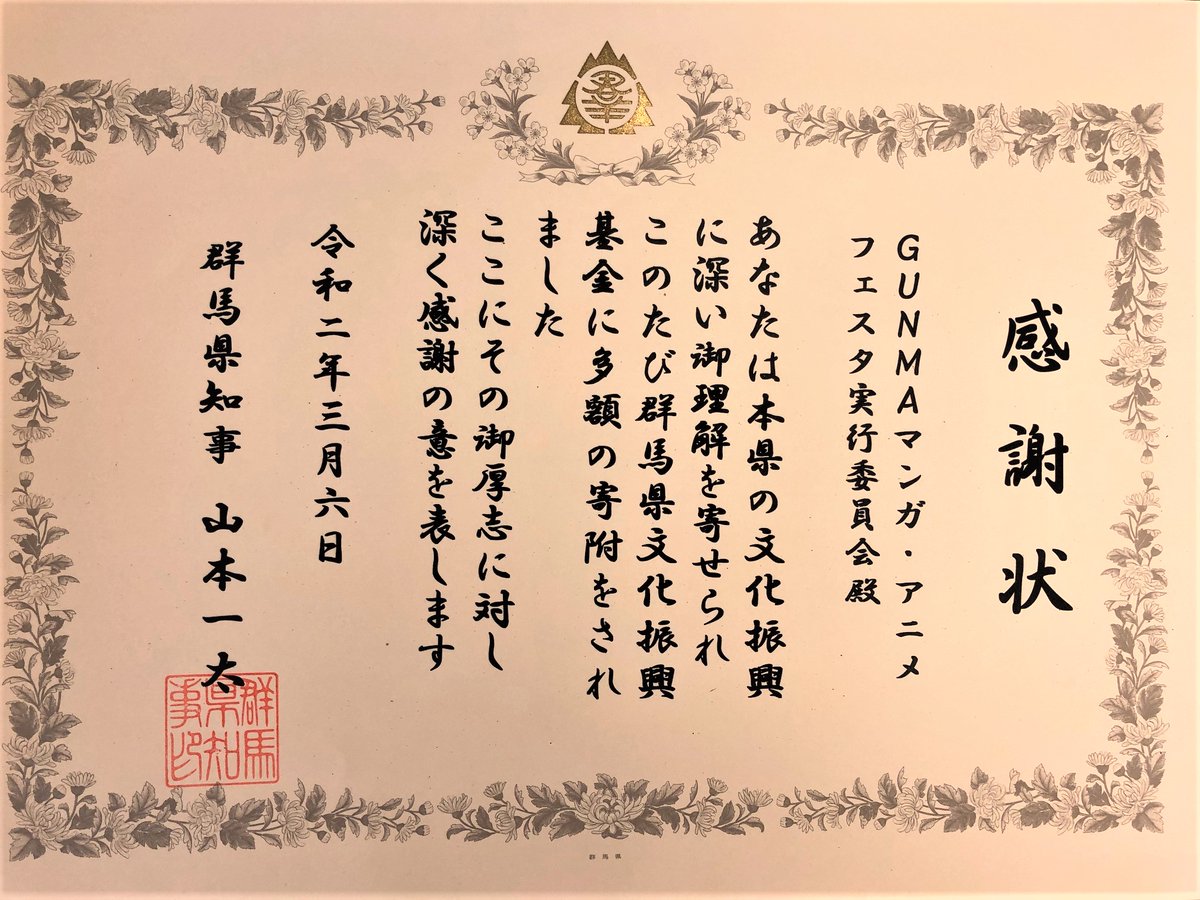 感謝状
GUNMAマンガ・アニメ
フェスタ実行委員会殿
あなたは本県の文化振興
に深い御理解を寄せられ
このたび群馬県文化振興
基金に多額の寄附をされ
ました
ここにその御厚志に対し
深く感謝の意を表します
令和二年三月六日
群馬県知事 山本一太
群馬
県知
事印
群馬県